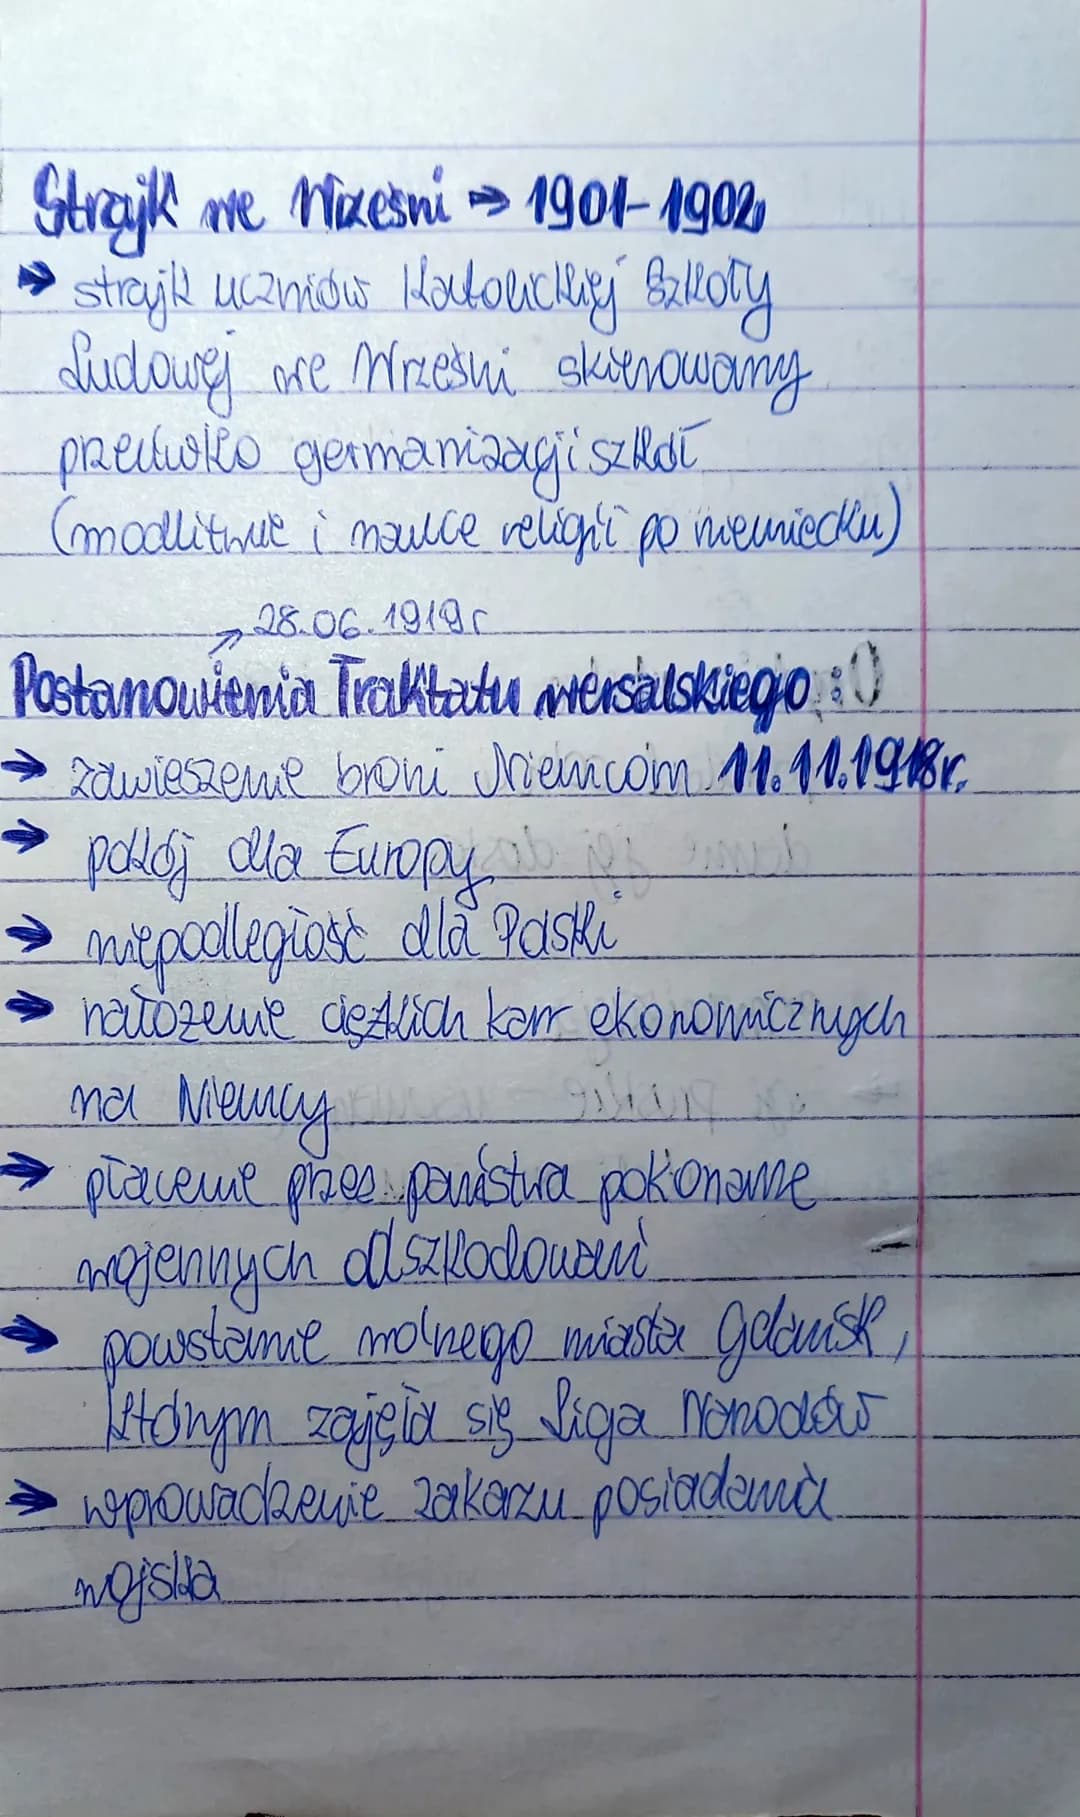 Strajk we Wrześni → 1901-1902
→ strajk uczniów Katolickiej Szkoły
Ludowej we Wrześni skierowany
przeciwko germanizacji szkół
(modlitwie i nauce religii po niemiecku)
→ 28.06.1919r
Postanowienia Traktatu wersalskiego:
→ zawieszenie broni Niemcom 11.11.1918r.
→ pokój dla Europy
→ niepodległość dla Polski
→ nałożenie ciężkich kar ekonomicznych
na Niemcy
→ płacenie przez państwa pokonane
wojennych odszkodowań
→ powstanie wolnego miasta Gdańsk,
którym zajęła się Liga Narodów
→ wprowadzenie zakazu posiadania
wojska